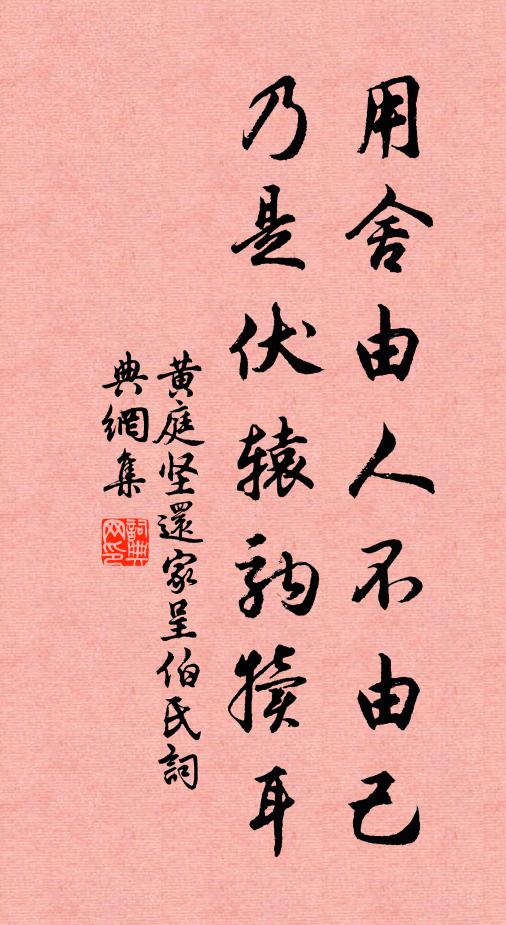 用舍由人不由己
乃是伏辕驹犊耳
黄庭坚還家呈伯氏詞
典網集
詞典
网印